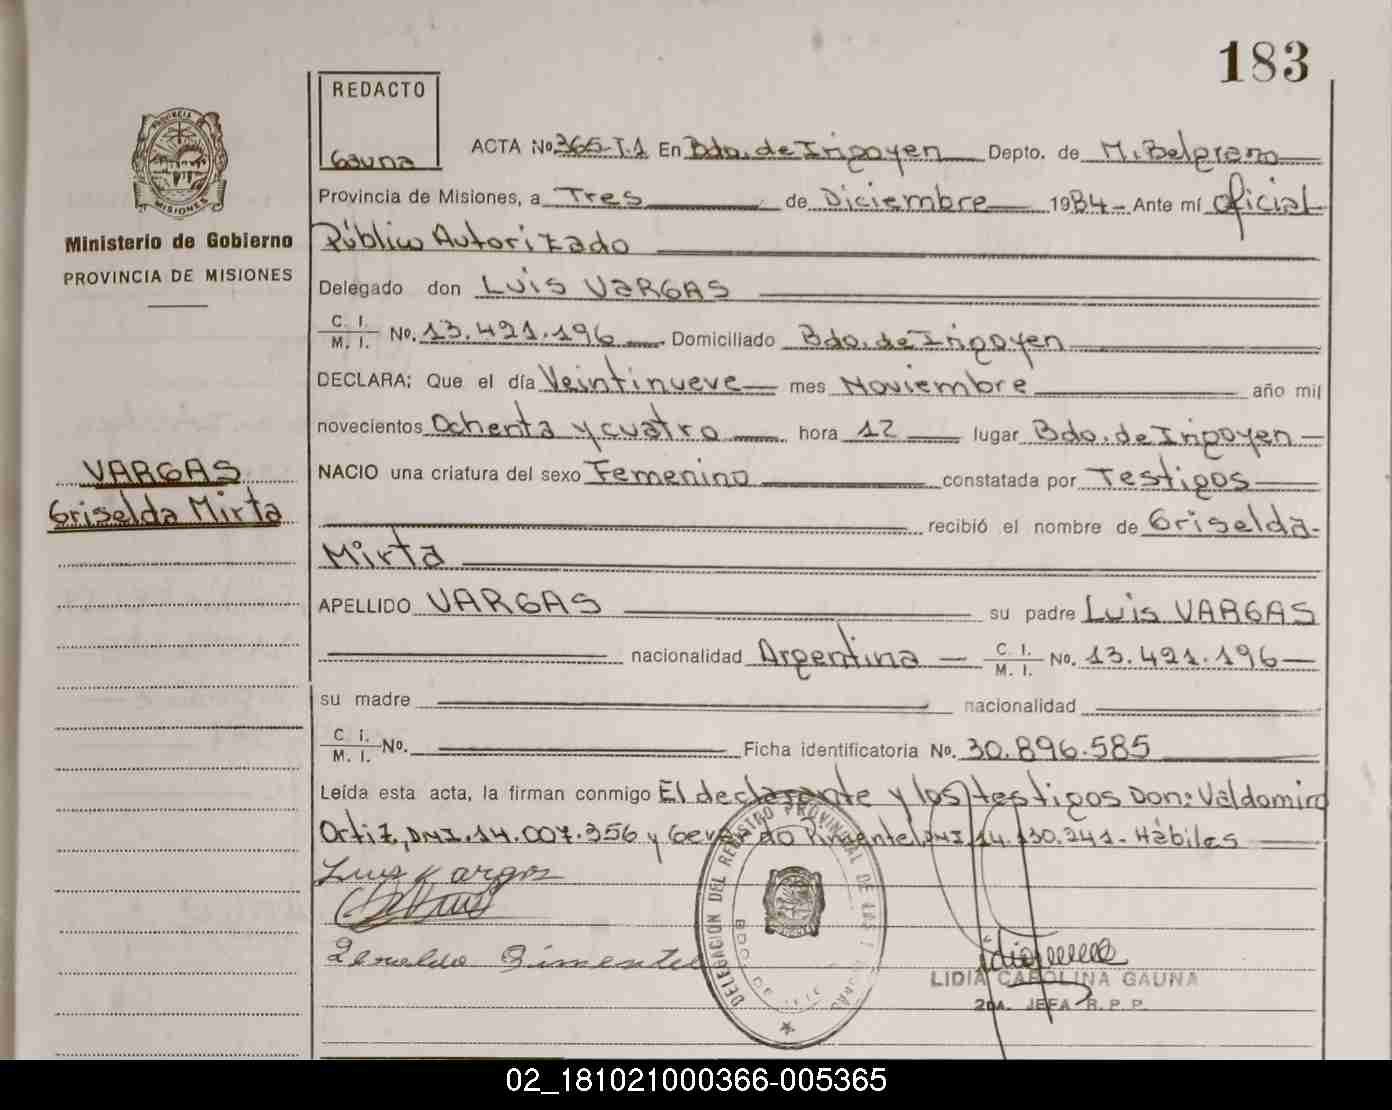 183
REDACTO
Gauna
ACTA No. 365-T.1 En Bdo. de Irigoyen Depto. de M. Belgrano
Provincia de Misiones, a Tres de Diciembre 1984- Ante mí Oficial
Público Autorizado
Delegado don Luis VARGAS
C. I.
M. I. No. 13.421.196 Domiciliado Bdo. de Irigoyen
DECLARA: Que el día Veintinueve mes Noviembre año mil
novecientos Ochenta y cuatro hora 12 lugar Bdo. de Irigoyen
NACIO una criatura del sexo Femenino constatada por Testigos
recibió el nombre de Griselda-
Mirta
APELLIDO VARGAS su padre Luis VARGAS
nacionalidad Argentina C. I.
M. I. No. 13.421.196
su madre nacionalidad
C. I.
M. I. No. Ficha identificatoria No. 30.896.585
Leída esta acta, la firman conmigo El declarante y los testigos Don: Valdomiro
Ortiz, DNI. 14.007.356 y Pimentel, DNI. 14.130.241- Hábiles
Luis Vargas
Pimentel
PROVINCIA
MISIONES
Ministerio de Gobierno
PROVINCIA DE MISIONES
VARGAS
Griselda Mirta
DELEGACION DEL REGISTRO PROVINCIAL DE LAS PERSONAS
LIDIA CAROLINA GAUNA
2DA. JEFA R. P. P.
02_181021000366-005365